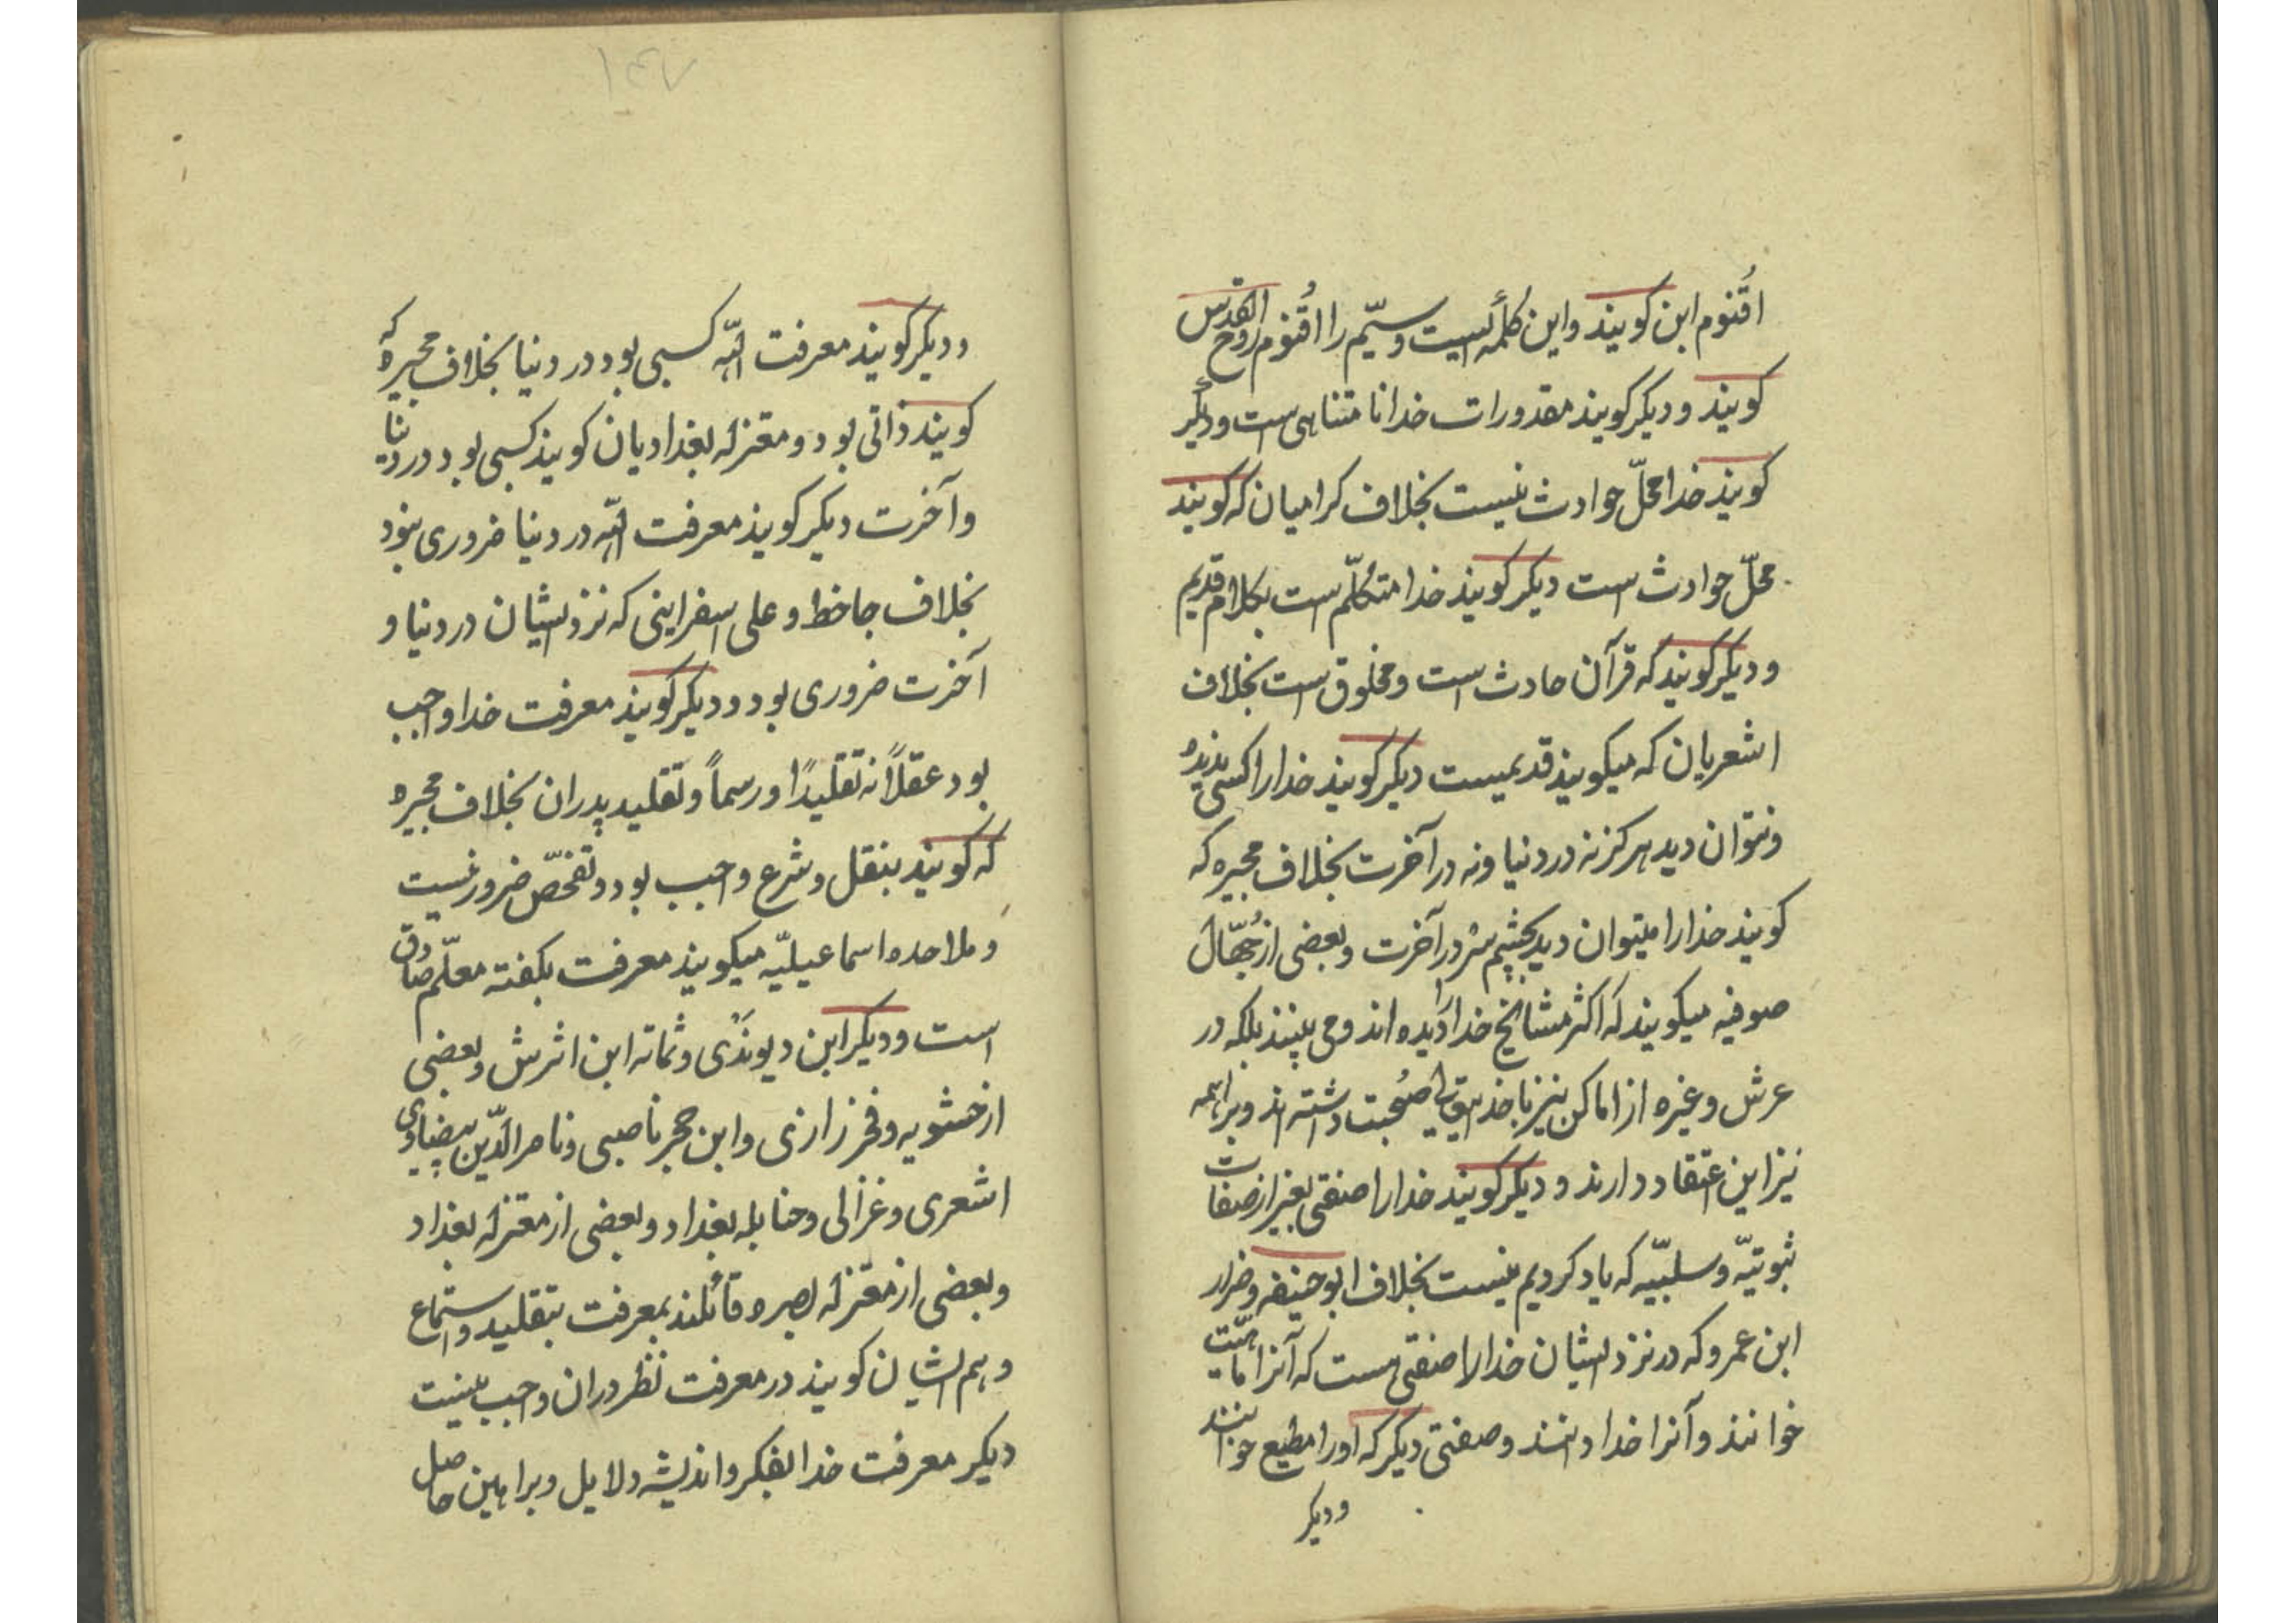 اقنوم ابن کویند واین کلمه ایست وسیّم را اقنوم روح القدس
کویند و دیکر کویند مقدورات خدا نا متناهی است و دیکر
کویند خدا محلّ حوادث نیست بخلاف کرامیان که کویند
محلّ حوادث است دیکر کویند خدا متکلّم است بکلام قدیم
و دیکر کویند که قرآن حادث است و مخلوق است بخلاف
اشعریان که میکویند قدیمست دیکر کویند خدا را کسی ندیده
و نتوان دید هرکز نه در دنیا ونه در آخرت بخلاف مجبره که
کویند خدا را میتوان دید بچشم سر در آخرت وبعضی از جهّال
صوفیه میکویند که اکثر مشایخ خدا را دیده اند و می بینند بلکه در
عرش وغیره از اماکن نیز با خدایتعالی صحبت داشته اند وبراهمه
نیز این اعتقاد دارند و دیکر کویند خدا را صفتی بغیر از صفات
ثبوتیّه وسلبیّه که یاد کردیم نیست بخلاف ابو حنیفه وضرار
ابن عمرو که در نزد ایشان خدا را صفتی هست که آنرا ماهیّت
خوانند وآنرا خدا دانند وصفتی دیکر که اورا مطیع خوانند
ودیکر
۱۴۷
ودیکر کویند معرفت الله کسبی بود در دنیا بخلاف مجبره که
کویند ذاتی بود و معتزله بغدادیان کویند کسبی بود در دنیا
وآخرت دیکر کویند معرفت الله در دنیا ضروری نبود
بخلاف جاحظ و علی اسفراینی که نزد ایشان در دنیا و
آخرت ضروری بود ودیکر کویند معرفت خدا واجب
بود عقلاً نه تقلیدًا ورسماً وتقلید پدران بخلاف مجبره
که کویند بنقل وشرع واجب بود وتفحّص ضرور نیست
و ملاحده اسماعیلیّه میکویند معرفت بکفته معلّم صادق
است ودیکر ابن دیوندی وثمانه ابن اثرش وبعضی
از حشویه وفخر رازی وابن حجر ناصبی وناصر الدّین بیضاوی
اشعری وغزالی وحنابله بغداد وبعضی از معتزله بغداد
وبعضی از معتزله بصره قائلند بمعرفت بتقلید واستماع
وهم ایشان کویند در معرفت نظر دران واجب نیست
دیکر معرفت خدا بفکر واندیشه ودلایل وبراهین حاصل